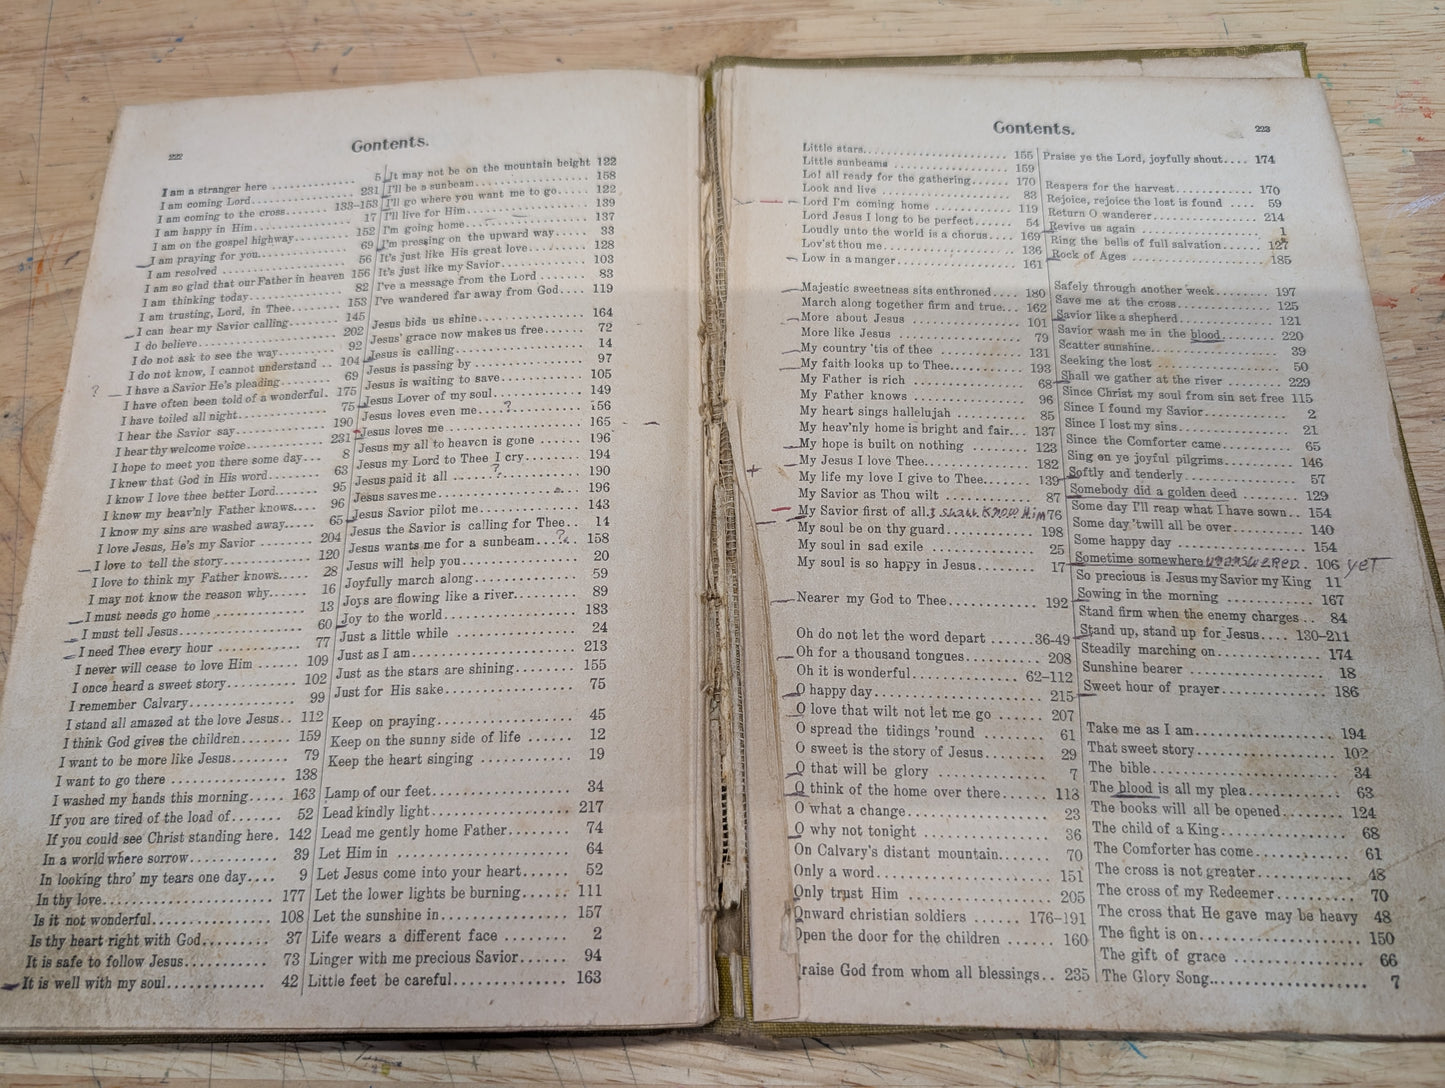 222
Contents.
I am a stranger here ............ 5
I am coming Lord.............. 231
I am coming to the cross....... 133-153
I am happy in Him............. 17
I am on the gospel highway........ 152
I am praying for you............ 69
I am resolved ................ 56
I am so glad that our Father in heaven 156
I am thinking today............ 82
I am trusting, Lord, in Thee....... 153
I can hear my Savior calling....... 145
I do believe................ 202
I do not ask to see the way....... 92
I do not know, I cannot understand .. 104
? I have a Savior He's pleading....... 69
I have often been told of a wonderful. 175
I have toiled all night............ 75
I hear the Savior say............ 190
I hear thy welcome voice........ 231
I hope to meet you there some day... 8
I knew that God in His word...... 63
I know I love thee better Lord...... 95
I know my heav'nly Father knows.... 96
I know my sins are washed away..... 65
I love Jesus, He's my Savior ....... 204
I love to tell the story........... 120
I love to think my Father knows..... 28
I may not know the reason why..... 16
I must needs go home ........... 13
I must tell Jesus............... 60
I need Thee every hour .......... 77
I never will cease to love Him ...... 109
I once heard a sweet story......... 102
I remember Calvary............. 99
I stand all amazed at the love Jesus.. 112
I think God gives the children....... 159
I want to be more like Jesus....... 79
I want to go there .............. 138
I washed my hands this morning..... 163
If you are tired of the load of....... 52
If you could see Christ standing here. 142
In a world where sorrow........... 39
In looking thro' my tears one day.... 9
In thy love.................... 177
Is it not wonderful.............. 108
Is thy heart right with God......... 37
It is safe to follow Jesus.......... 73
It is well with my soul............ 42
It may not be on the mountain height 122
I'll be a sunbeam............... 158
I'll go where you want me to go..... 122
I'll live for Him................ 139
I'm going home................ 137
I'm pressing on the upward way..... 33
It's just like His great love......... 128
It's just like my Savior........... 103
I've a message from the Lord ...... 83
I've wandered far away from God.... 119
Jesus bids us shine.............. 164
Jesus' grace now makes us free..... 72
Jesus is calling................ 14
Jesus is passing by .............. 97
Jesus is waiting to save........... 105
Jesus Lover of my soul........... 149
Jesus loves even me....?........ 156
Jesus loves me................ 165
Jesus my all to heaven is gone ...... 196
Jesus my Lord to Thee I cry........ 194
Jesus paid it all .....?.......... 190
Jesus saves me................ 196
Jesus Savior pilot me............ 143
Jesus the Savior is calling for Thee.. 14
Jesus wants me for a sunbeam...?.. 158
Jesus will help you.............. 20
Joyfully march along............ 59
Joys are flowing like a river........ 89
Joy to the world................ 183
Just a little while .............. 24
Just as I am................... 213
Just as the stars are shining........ 155
Just for His sake............... 75
Keep on praying................ 45
Keep on the sunny side of life ...... 12
Keep the heart singing ........... 19
Lamp of our feet................ 34
Lead kindly light............... 217
Lead me gently home Father........ 74
Let Him in ................... 64
Let Jesus come into your heart...... 52
Let the lower lights be burning...... 111
Let the sunshine in.............. 157
Life wears a different face ........ 2
Linger with me precious Savior...... 94
Little feet be careful............. 163
Contents.
223
Little stars.................... 155
Little sunbeams ................ 159
Lo! all ready for the gathering...... 170
Look and live ................. 83
Lord I'm coming home ........... 119
Lord Jesus I long to be perfect...... 54
Loudly unto the world is a chorus.... 169
Lov'st thou me................. 136
Low in a manger................ 161
Majestic sweetness sits enthroned.... 180
March along together firm and true... 162
More about Jesus ............... 101
More like Jesus ................ 79
My country 'tis of thee ........... 131
My faith looks up to Thee......... 193
My Father is rich ............... 68
My Father knows ............... 96
My heart sings hallelujah ......... 85
My heav'nly home is bright and fair... 137
My hope is built on nothing ....... 123
+ My Jesus I love Thee............ 182
My life my love I give to Thee...... 139
My Savior as Thou wilt .......... 87
My Savior first of all. I shall know Him 76
My soul be on thy guard.......... 198
My soul in sad exile ............ 25
My soul is so happy in Jesus....... 17
Nearer my God to Thee........... 192
Oh do not let the word depart ...... 36-49
Oh for a thousand tongues......... 208
Oh it is wonderful............... 62-112
O happy day................... 215
O love that wilt not let me go ...... 207
O spread the tidings 'round ........ 61
O sweet is the story of Jesus........ 29
O that will be glory .............. 7
O think of the home over there...... 113
O what a change................ 23
O why not tonight .............. 36
On Calvary's distant mountain....... 70
Only a word................... 151
Only trust Him ................ 205
Onward christian soldiers ...... 176-191
Open the door for the children ...... 160
raise God from whom all blessings.. 235
Praise ye the Lord, joyfully shout.... 174
Reapers for the harvest........... 170
Rejoice, rejoice the lost is found .... 59
Return O wanderer.............. 214
Revive us again ................ 1
Ring the bells of full salvation....... 127
Rock of Ages .................. 185
Safely through another week........ 197
Save me at the cross............. 125
Savior like a shepherd............ 121
Savior wash me in the blood....... 220
Scatter sunshine................ 39
Seeking the lost ................ 50
Shall we gather at the river ........ 229
Since Christ my soul from sin set free 115
Since I found my Savior.......... 2
Since I lost my sins.............. 21
Since the Comforter came......... 65
Sing on ye joyful pilgrims......... 146
Softly and tenderly .............. 57
Somebody did a golden deed ....... 129
Some day I'll reap what I have sown.. 154
Some day 'twill all be over........ 140
Some happy day ................ 154
Sometime somewhere unanswered.. 106 yet
So precious is Jesus my Savior my King 11
Sowing in the morning ........... 167
Stand firm when the enemy charges.. 84
Stand up, stand up for Jesus.... 130-211
Steadily marching on............. 174
Sunshine bearer ................ 18
Sweet hour of prayer............. 186
Take me as I am................ 194
That sweet story................ 102
The bible..................... 34
The blood is all my plea.......... 63
The books will all be opened....... 124
The child of a King.............. 68
The Comforter has come.......... 61
The cross is not greater........... 48
The cross of my Redeemer......... 70
The cross that He gave may be heavy 48
The fight is on................. 150
The gift of grace ............... 66
The Glory Song................. 7